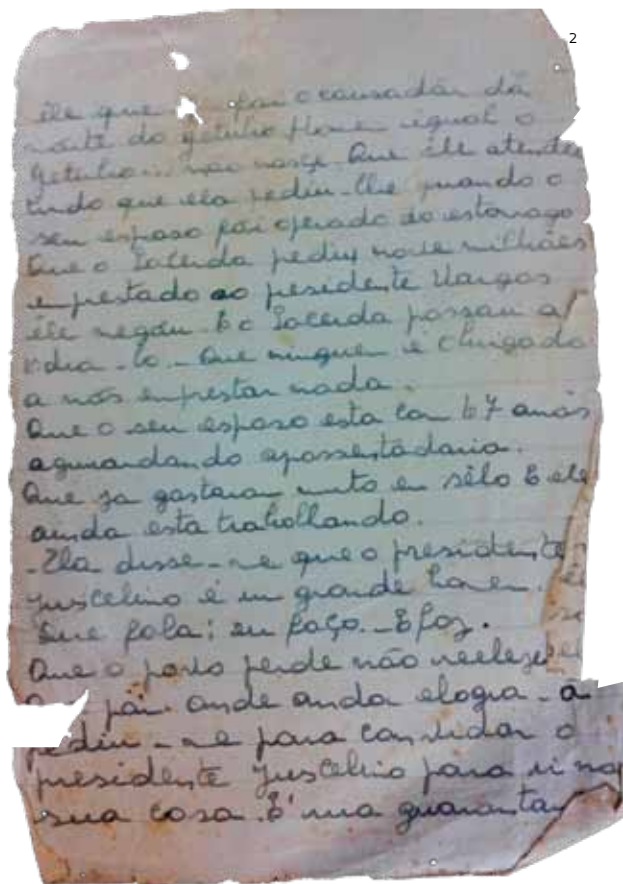 2
êle que foi o causadôr da
morte do getulho Homem igual o
Getulho... não nasçe. Que êle atendeu
tudo que ela pediu-lhe quando o
seu esposo foi operado do estomago
Que o Lacerda pediu nove milhões
emprestado ao presidente Vargas
êle negou. E o Lacerda passou a
odia-lo. Que ninguem é obrigado
a nós emprestar nada.
Que o seu esposo esta com 67 anos
aguardando apossentadaria.
Que ja gastaram muito em sêlo E ele
ainda esta trabalhando.
-Ela disse-me que o presidente
Juscelino é um grande homem.
Que fala: eu faço. E faz.
Que o povo perde não reelege
pai. onde anda elogia-o
pediu-me para convidar o
presidente Juscelino para ir na
sua casa. E' rua guaranta